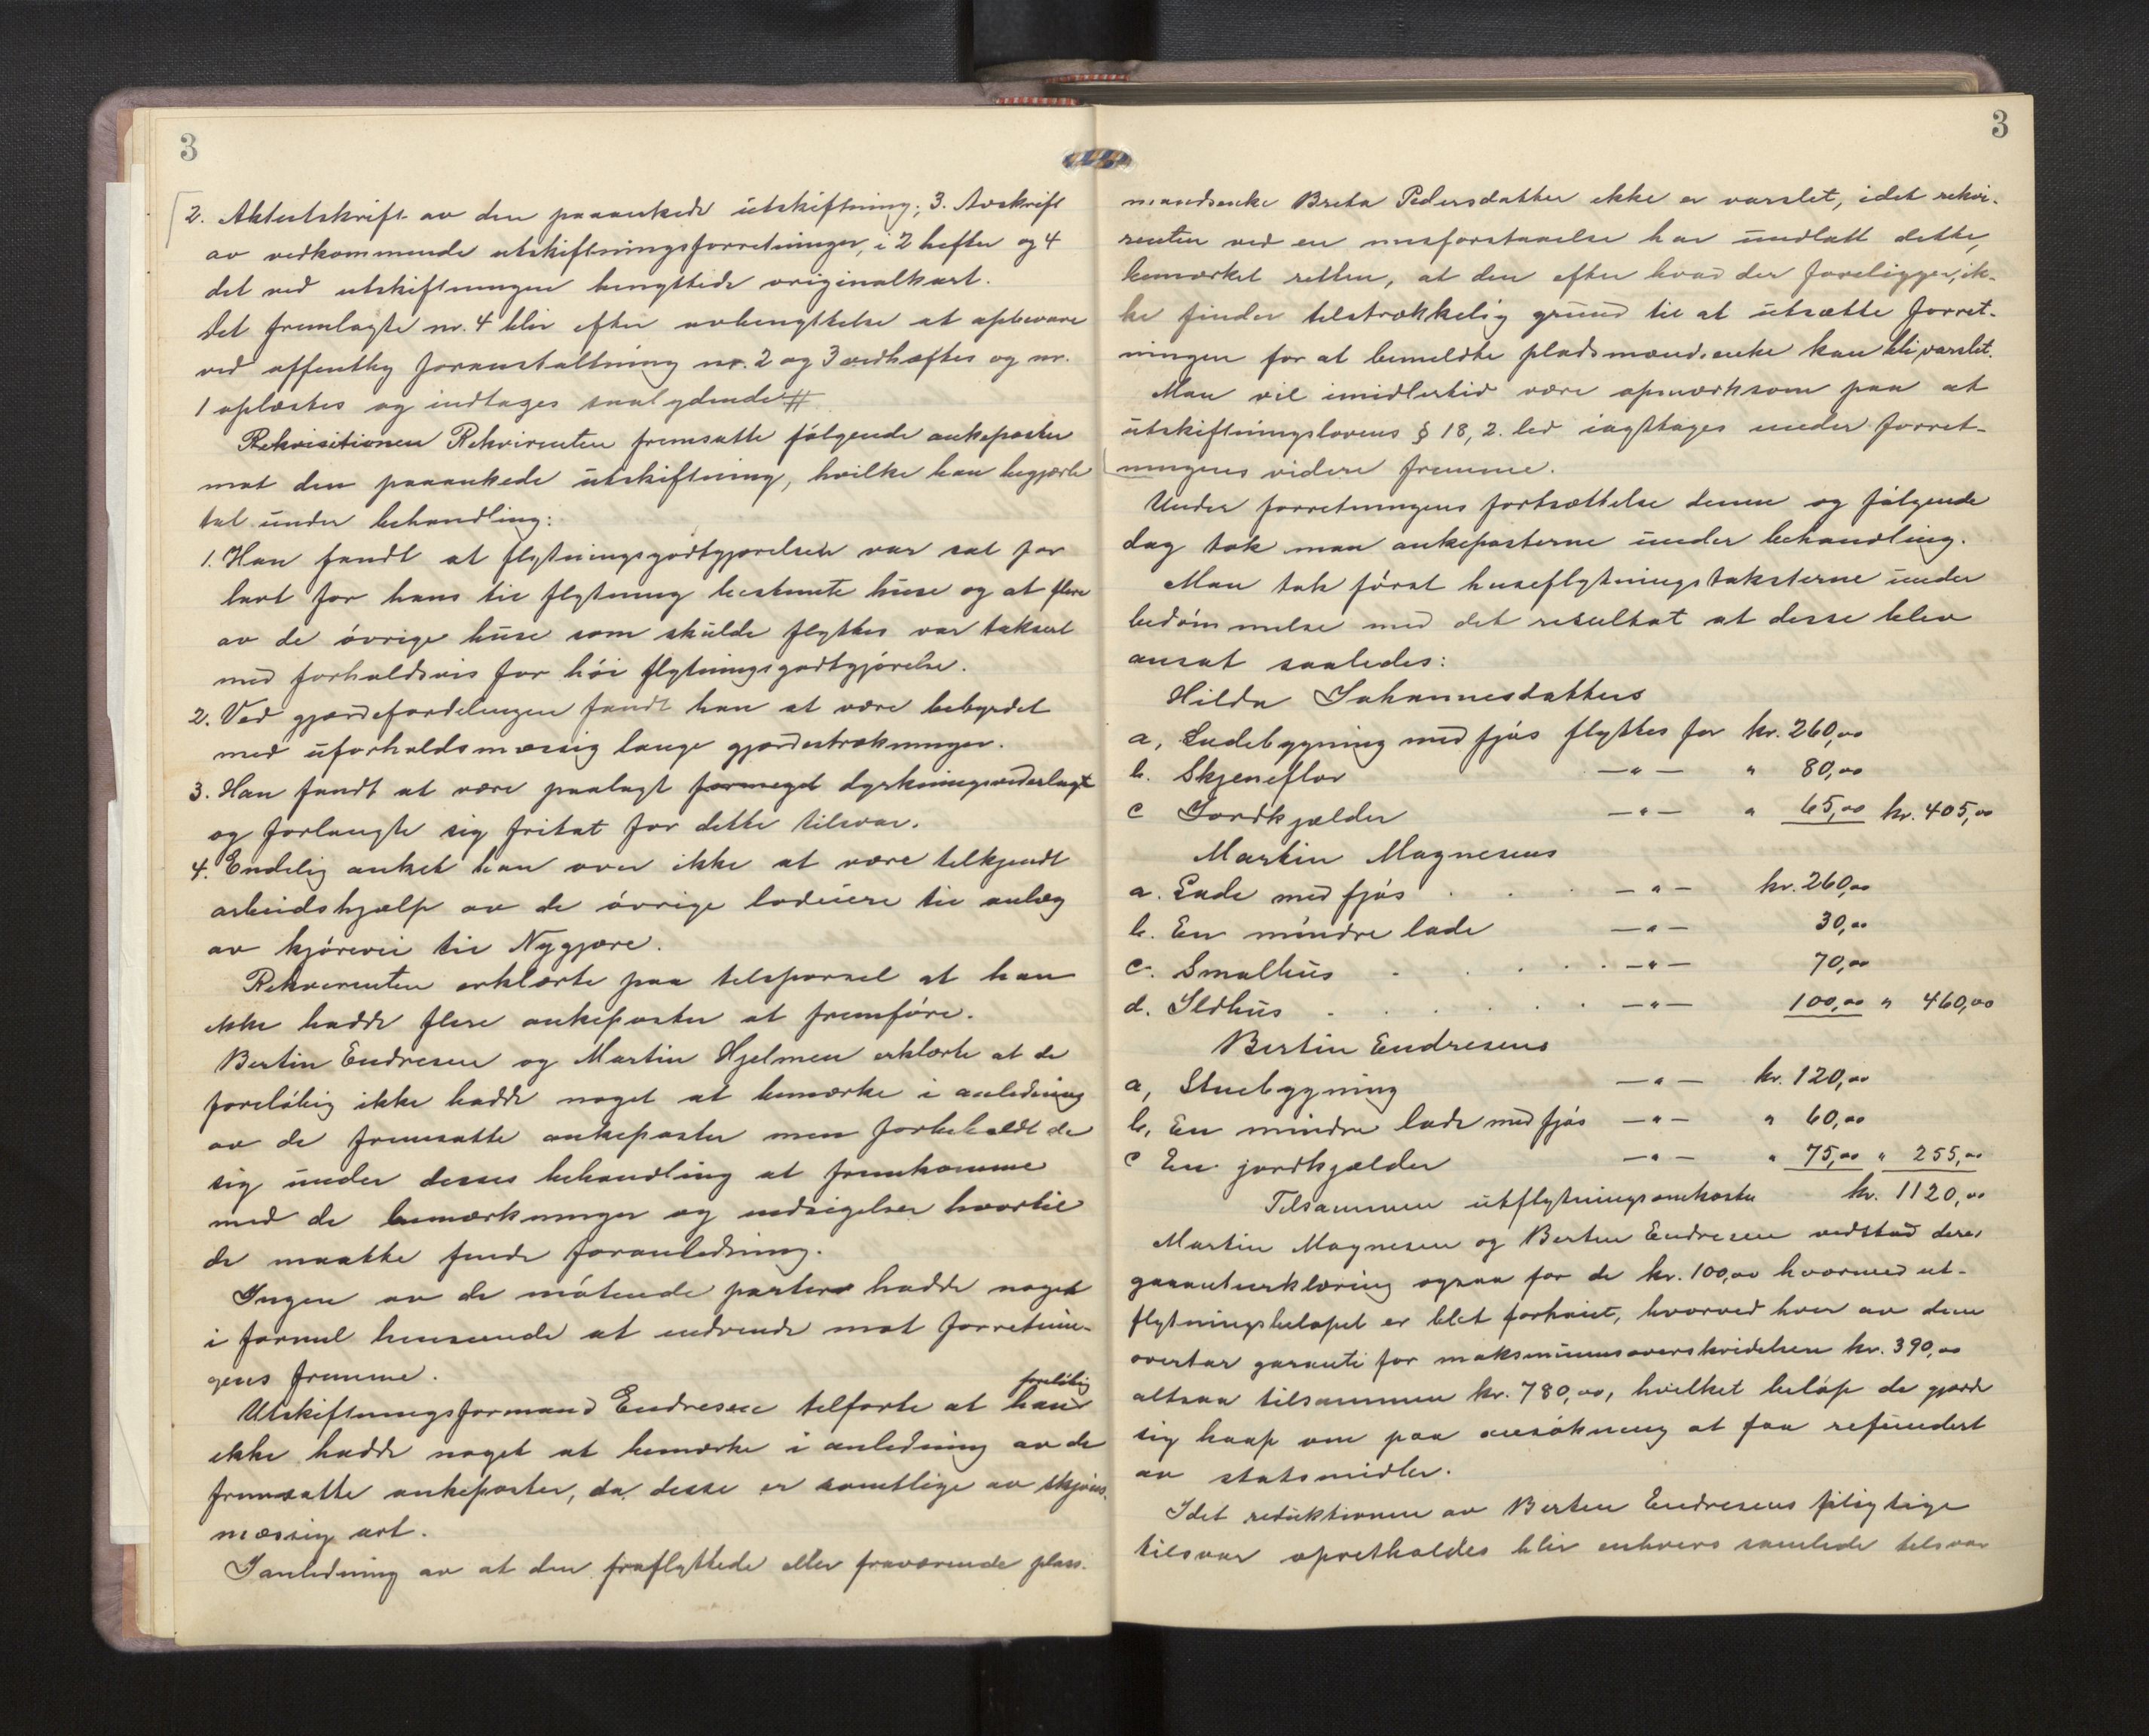 3
2. Aktutskrift av den paaankede utskiftning; 3. Avskrift
av vedkommende utskiftningsforretninger, i 2 hefter og 4
det ved utskiftningen benyttede originalkart.
Det fremlagte nr. 4 blir efter avbenyttelse at opbevare
ved offentlig foranstaltning nr. 2 og 3 vedhæftes og nr.
1 oplæstes og indtages saalydende #
Rekvisitionen Rekvirenten fremsatte følgende ankeposter
mot den paaankede utskiftning, hvilke han begjærte
tat under behandling:
1. Han fandt at flytningsgodtgjørelsen var sat for
lavt for hans til flytning bestemte huse og at flere
av de øvrige huse som skulde flyttes var taksert
med forholdsvis for høi flytningsgodtgjørelse.
2. Ved gjærdefordelingen fandt han at være bebyrdet
med uforholdsmæssig lange gjærdestrækninger.
3. Han fandt at være paalagt formeget dyrkningsvederlag
og forlangte sig fritat for dette tilsvar.
4. Endelig anket han over ikke at være tilkjendt
arbeidshjælp av de øvrige lodeiere til anlæg
av kjørevei til Nygjære.
Rekvirenten erklærte paa tilspørsel at han
ikke hadde flere ankeposter at fremføre.
Bertin Endresen og Martin Hjelmen erklærte at de
foreløbig ikke hadde noget at bemærke i anledning
av de fremsatte ankeposter men forbeholdt de
sig under desses behandling at fremkomme
med de bemærkninger og indsigelser hvortil
de maatte finde foranledning.
Ingen av de møtende parter hadde noget
i formel henseende at indvende mot forretnin-
gens fremme.
foreløbig
Utskiftningsformand Endresen tilførte at han
ikke hadde noget at bemærke i anledning av de
fremsatte ankeposter, da desse er samtlige av skjøns-
mæssig art.
I anledning av at den fraflyttede eller fraværende plass-
3
mandsenke Breta Pedersdatter ikke er varslet, idet rekvi-
renten ved en misforstaaelse har undlatt dette,
bemærket retten, at den efter hvad der foreligger, ik-
ke finder tilstrækkelig grund til at utsætte forret-
ningen for at bemeldte pladsmandsenke kan bli varslet.
Man vil imidlertid være opmerksom paa at
utskiftningslovens § 18, 2. led iagttages under forret-
ningens videre fremme.
Under forretningens fortsættelse denne og følgende
dag tok man ankeposterne under behandling.
Man tok først huseflytningstaksterne under
bedømmelse med det resultat at desse blev
ansat saaledes:
Hilda Johannesdatters
a, Ladebygning med fjøs flyttes for kr. 260,00
b. Skjeneflor —"— " 80,00
c Jordkjælder —"— " 65,00 kr. 405,00
Martin Magnesens
a. Lade med fjøs . . . —"— kr. 260,00
b. En mindre lade —"— 30,00
c. Smalhus . . . . . —"— 70,00
d. Ildhus . . . . . —"— 100,00 " 460,00
Bertin Endresens
a, Stuebygning —"— kr. 120,00
b, En mindre lade med fjøs —"— " 60,00
c En jordkjælder —"— " 75,00 " 255,00
Tilsammen utflytningsomkoster kr. 1120,00
Martin Magnesen og Bertin Endresen vedstod deres
garantierklæring ogsaa for de kr. 100,00 hvormed ut-
flytningsbeløpet er blet forhøiet, hvorved hver av dem
overtar garanti for maksimumsoverskridelsen kr. 390,00
altsaa tilsammen kr. 780,00, hvilket beløp de gjorde
sig haap om paa ansøkning at faa refundert
av statsmidler.
Idet reduktionen av Bertin Endresens pligtige
tilsvar opretholdes blir enhvers samlede tilsvar